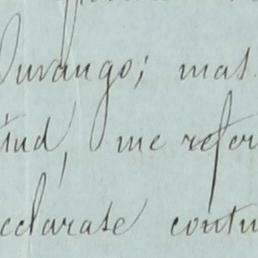 Durango; mas
tud, me refer
eclarase contu